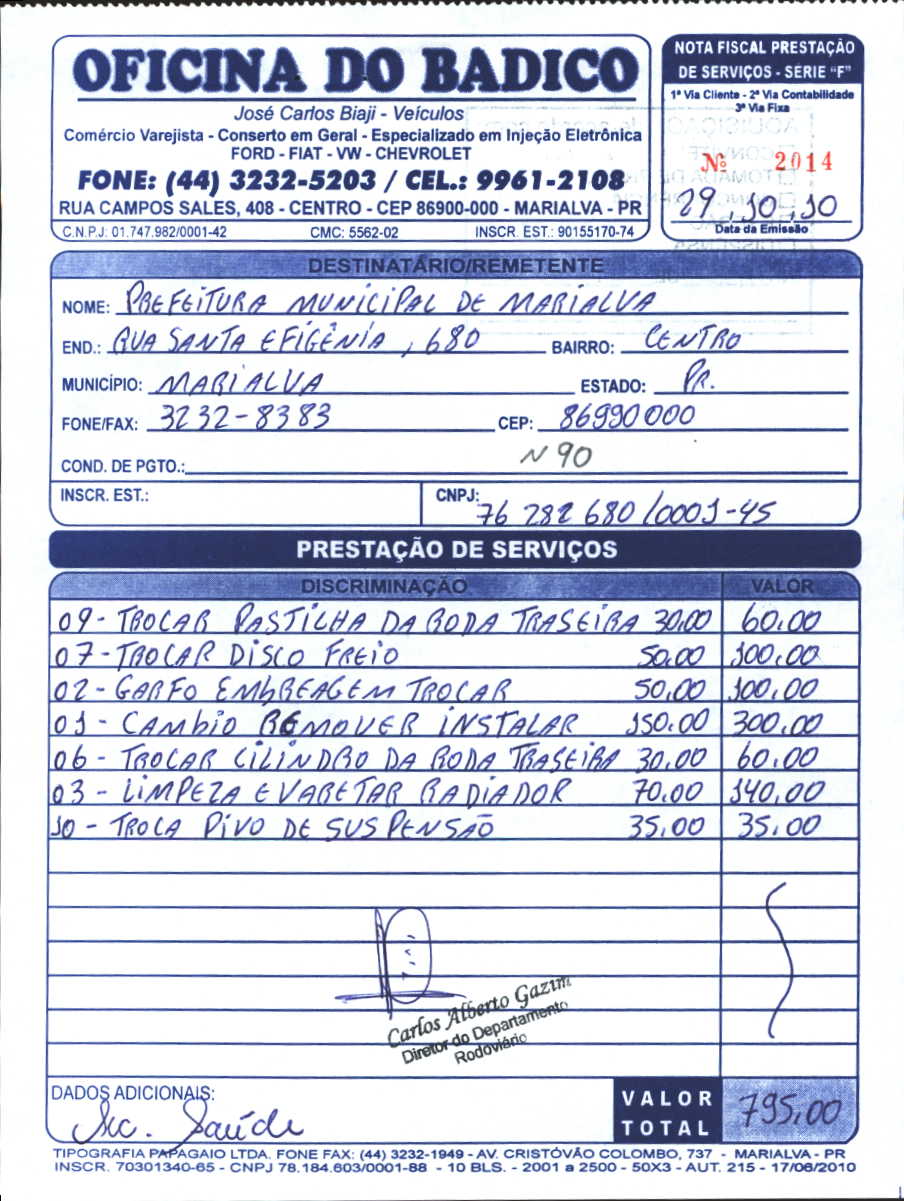 OFICINA DO BADICO
José Carlos Biaji - Veículos
Comércio Varejista - Conserto em Geral - Especializado em Injeção Eletrônica
FORD - FIAT - VW - CHEVROLET
FONE: (44) 3232-5203 / CEL.: 9961-2108
RUA CAMPOS SALES, 408 - CENTRO - CEP 86900-000 - MARIALVA - PR
C.N.P.J: 01.747.982/0001-42 CMC: 5562-02 INSCR. EST.: 90155170-74
NOTA FISCAL PRESTAÇÃO
DE SERVIÇOS - SÉRIE “F”
1ª Via Cliente - 2ª Via Contabilidade
3ª Via Fixa
Nº 2014
29, 10, 10
Data da Emissão
DESTINATÁRIO/REMETENTE
NOME: PREFEITURA MUNICIPAL DE MARIALVA
END.: RUA SANTA EFIGÊNIA, 680 BAIRRO: CENTRO
MUNICÍPIO: MARIALVA ESTADO: PR.
FONE/FAX: 3232-8383 CEP: 86990000
COND. DE PGTO.: N 90
INSCR. EST.: CNPJ: 76 282 680/0001-45
PRESTAÇÃO DE SERVIÇOS
DISCRIMINAÇÃO VALOR
09 - TROCAR PASTILHA DA RODA TRASEIRA 30,00 60,00
07 - TROCAR DISCO FREIO 50,00 100,00
02 - GARFO EMBREAGEM TROCAR 50,00 100,00
01 - CAMBIO REMOVER INSTALAR 150,00 300,00
06 - TROCAR CILINDRO DA RODA TRASEIRA 30,00 60,00
03 - LIMPEZA E VARETAR RADIADOR 70,00 140,00
10 - TROCA PIVO DE SUSPENSÃO 35,00 35,00
Carlos Alberto Gazim
Diretor do Departamento
Rodoviário
DADOS ADICIONAIS:
Sec. Saúde
VALOR
TOTAL
795,00
TIPOGRAFIA PAPAGAIO LTDA. FONE FAX: (44) 3232-1949 - AV. CRISTÓVÃO COLOMBO, 737 - MARIALVA - PR
INSCR. 70301340-65 - CNPJ 78.184.603/0001-88 - 10 BLS. - 2001 a 2500 - 50X3 - AUT. 215 - 17/06/2010